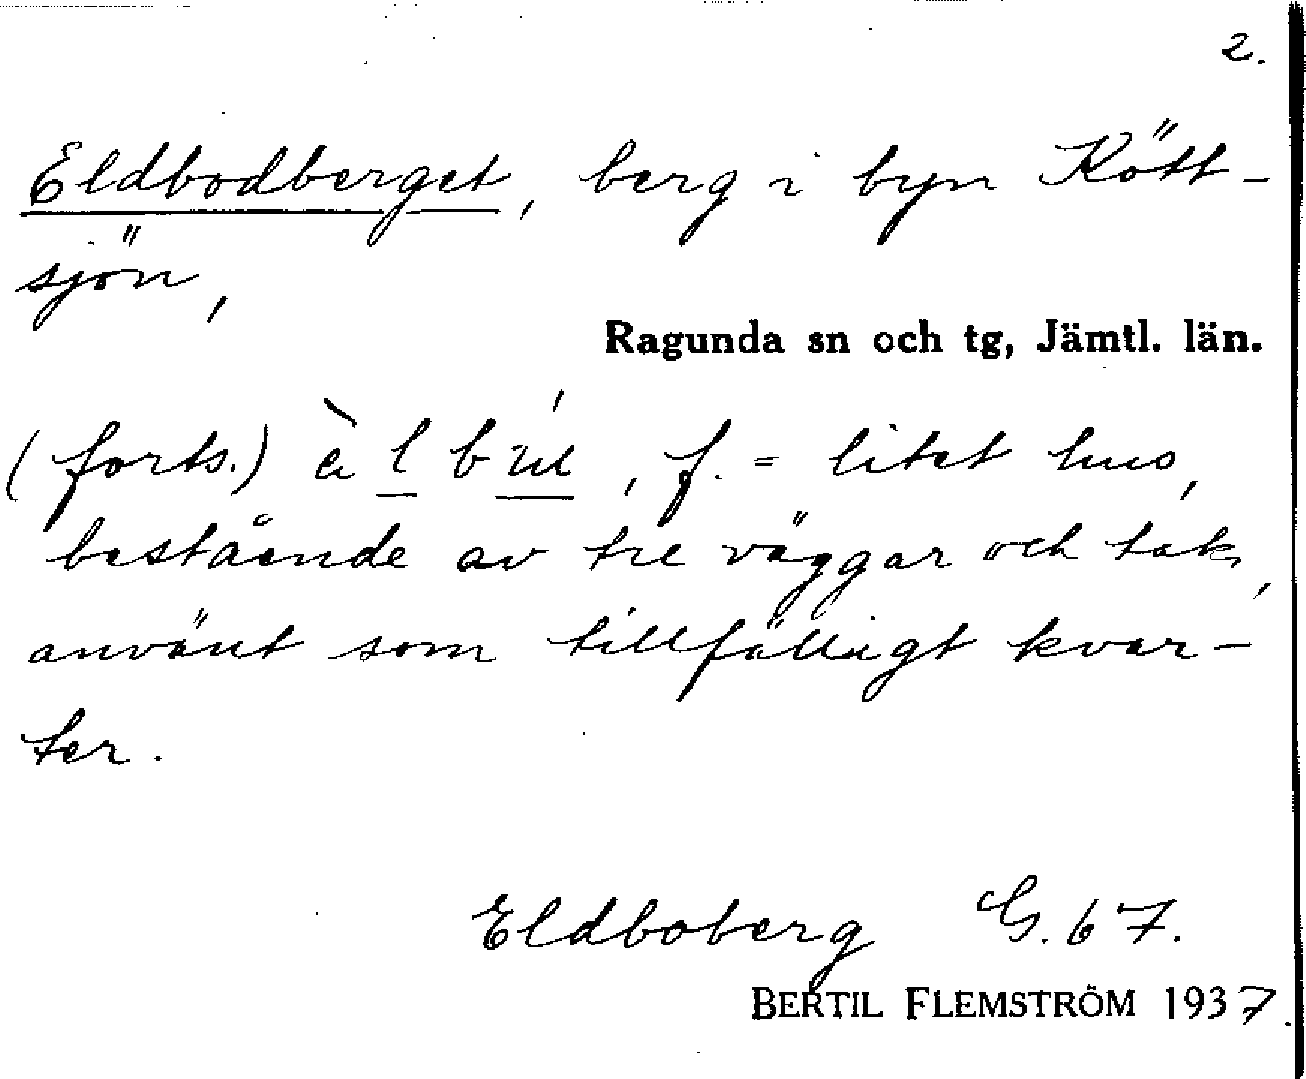 2.
Eldbodberget, berg i byn Kött-
sjön,
Ragunda sn och tg, Jämtl. län.
(forts.) f. = litet hus,
bestående av tre väggar och tak,
använt som tillfälligt kvar-
ter.
Eldboberg G. 67.
BERTIL FLEMSTRÖM 1937.